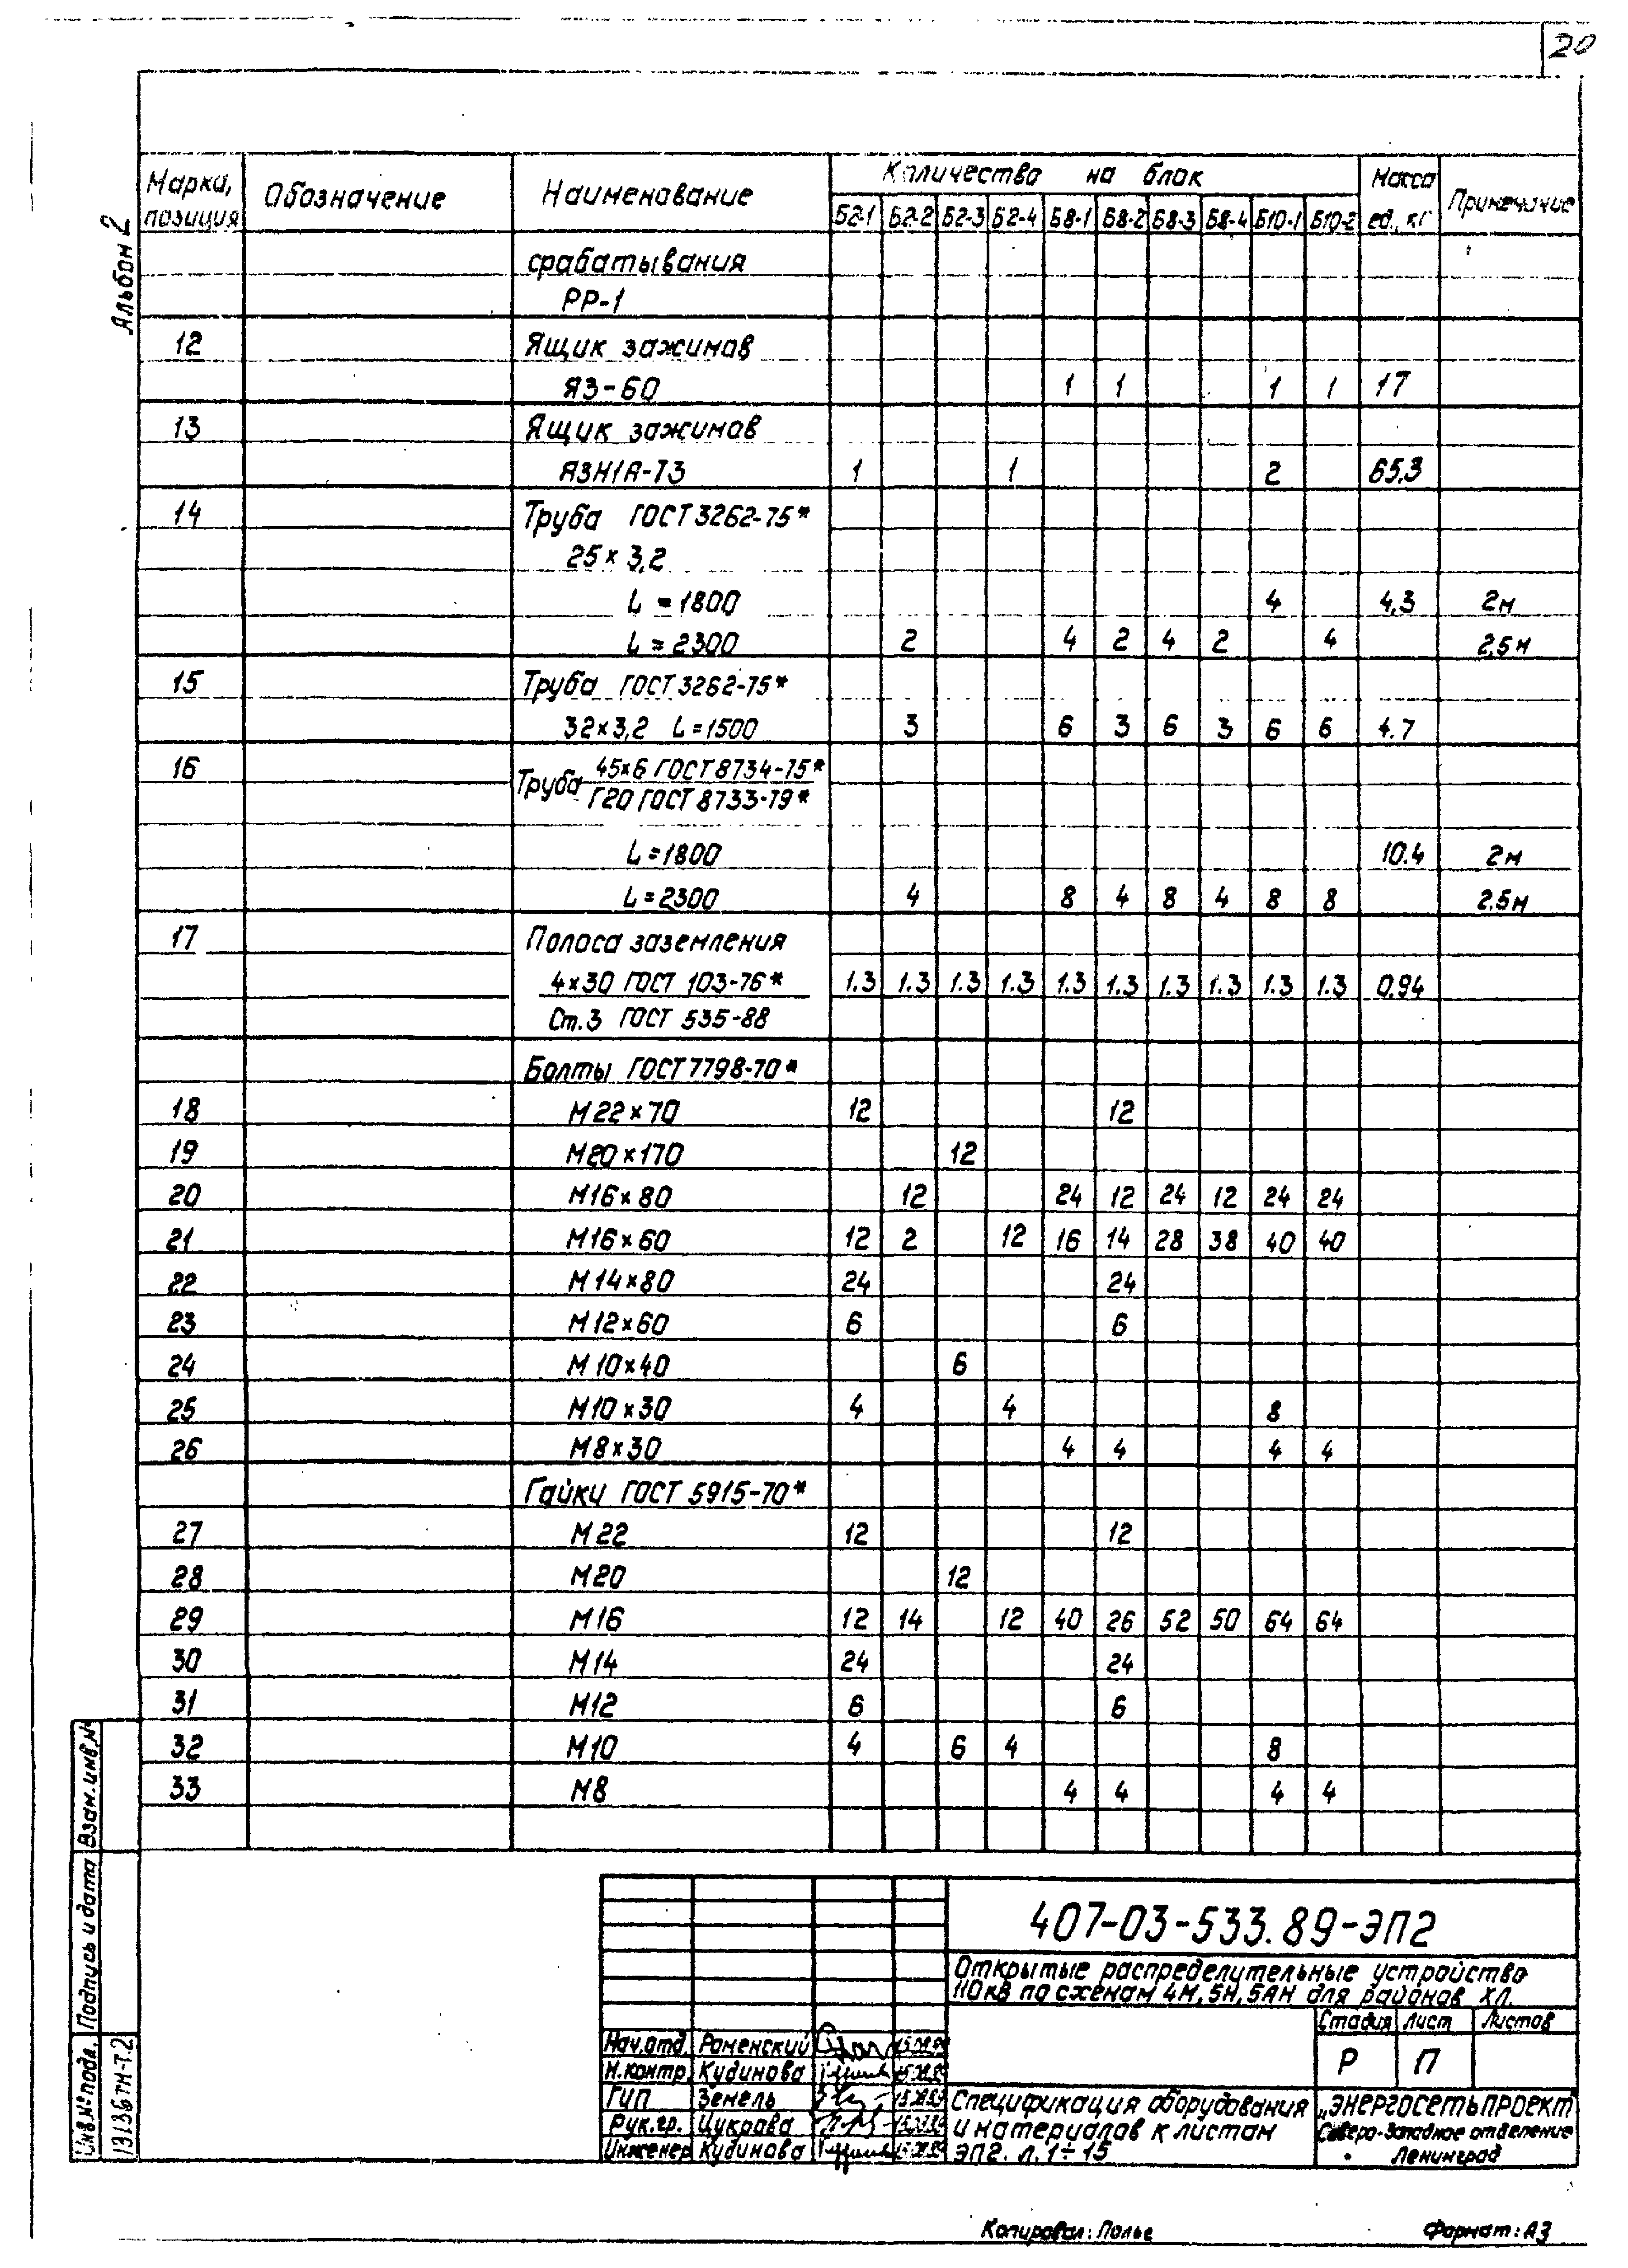 20
Альбом 2
Марка, позиция Обозначение Наименование Количество на блок Масса ед., кг Примечание
Б2-1 Б2-2 Б2-3 Б2-4 Б8-1 Б8-2 Б8-3 Б8-4 Б10-1 Б10-2
срабатывания
РР-1
12 Ящик зажимов
ЯЗ-60 1 1 1 1 17
13 Ящик зажимов
ЯЗН1А-73 1 1 2 65,3
14 Труба ГОСТ 3262-75*
25×3,2
L=1800 4 4,3 2м
L=2300 2 4 2 4 2 4 2,5м
15 Труба ГОСТ 3262-75*
32×3,2 L=1500 3 6 3 6 3 6 6 4.7
16 Труба 45×6 ГОСТ 8734-75*
Г20 ГОСТ 8733-79*
L=1800 10.4 2м
L=2300 4 8 4 8 4 8 8 2.5м
17 Полоса заземления
4×30 ГОСТ 103-76* 1.3 1.3 1.3 1.3 1.3 1.3 1.3 1.3 1.3 1.3 0,94
Ст.3 ГОСТ 535-88
Болты ГОСТ 7798-70*
18 М22×70 12 12
19 М20×170 12
20 М16×80 12 24 12 24 12 24 24
21 М16×60 12 2 12 16 14 28 38 40 40
22 М14×80 24 24
23 М12×60 6 6
24 М10×40 6
25 М10×30 4 4 8
26 М8×30 4 4 4 4
Гайки ГОСТ 5915-70*
27 М22 12 12
28 М20 12
29 М16 12 14 12 40 26 52 50 64 64
30 М14 24 24
31 М12 6 6
32 М10 4 6 4 8
33 М8 4 4 4 4
Взам.инв.№
Подпись и дата
Инв.№ подл.
13136тм-т.2
407-03-533.89-ЭП2
Открытые распределительные устройства
110кВ по схемам 4Н, 5Н, 5АН для районов ХЛ.
Стадия Лист Листов
Р П
Нач.отд. Роменский
Н.контр. Кудинова
ГИП Земель
Рук.гр. Цукрова
Инженер Кудинова
Спецификация оборудования
и материалов к листам
ЭП2. л.1÷15
„ЭНЕРГОСЕТЬПРОЕКТ"
Северо-Западное отделение
Ленинград
Копировал: Полье
Формат: А3